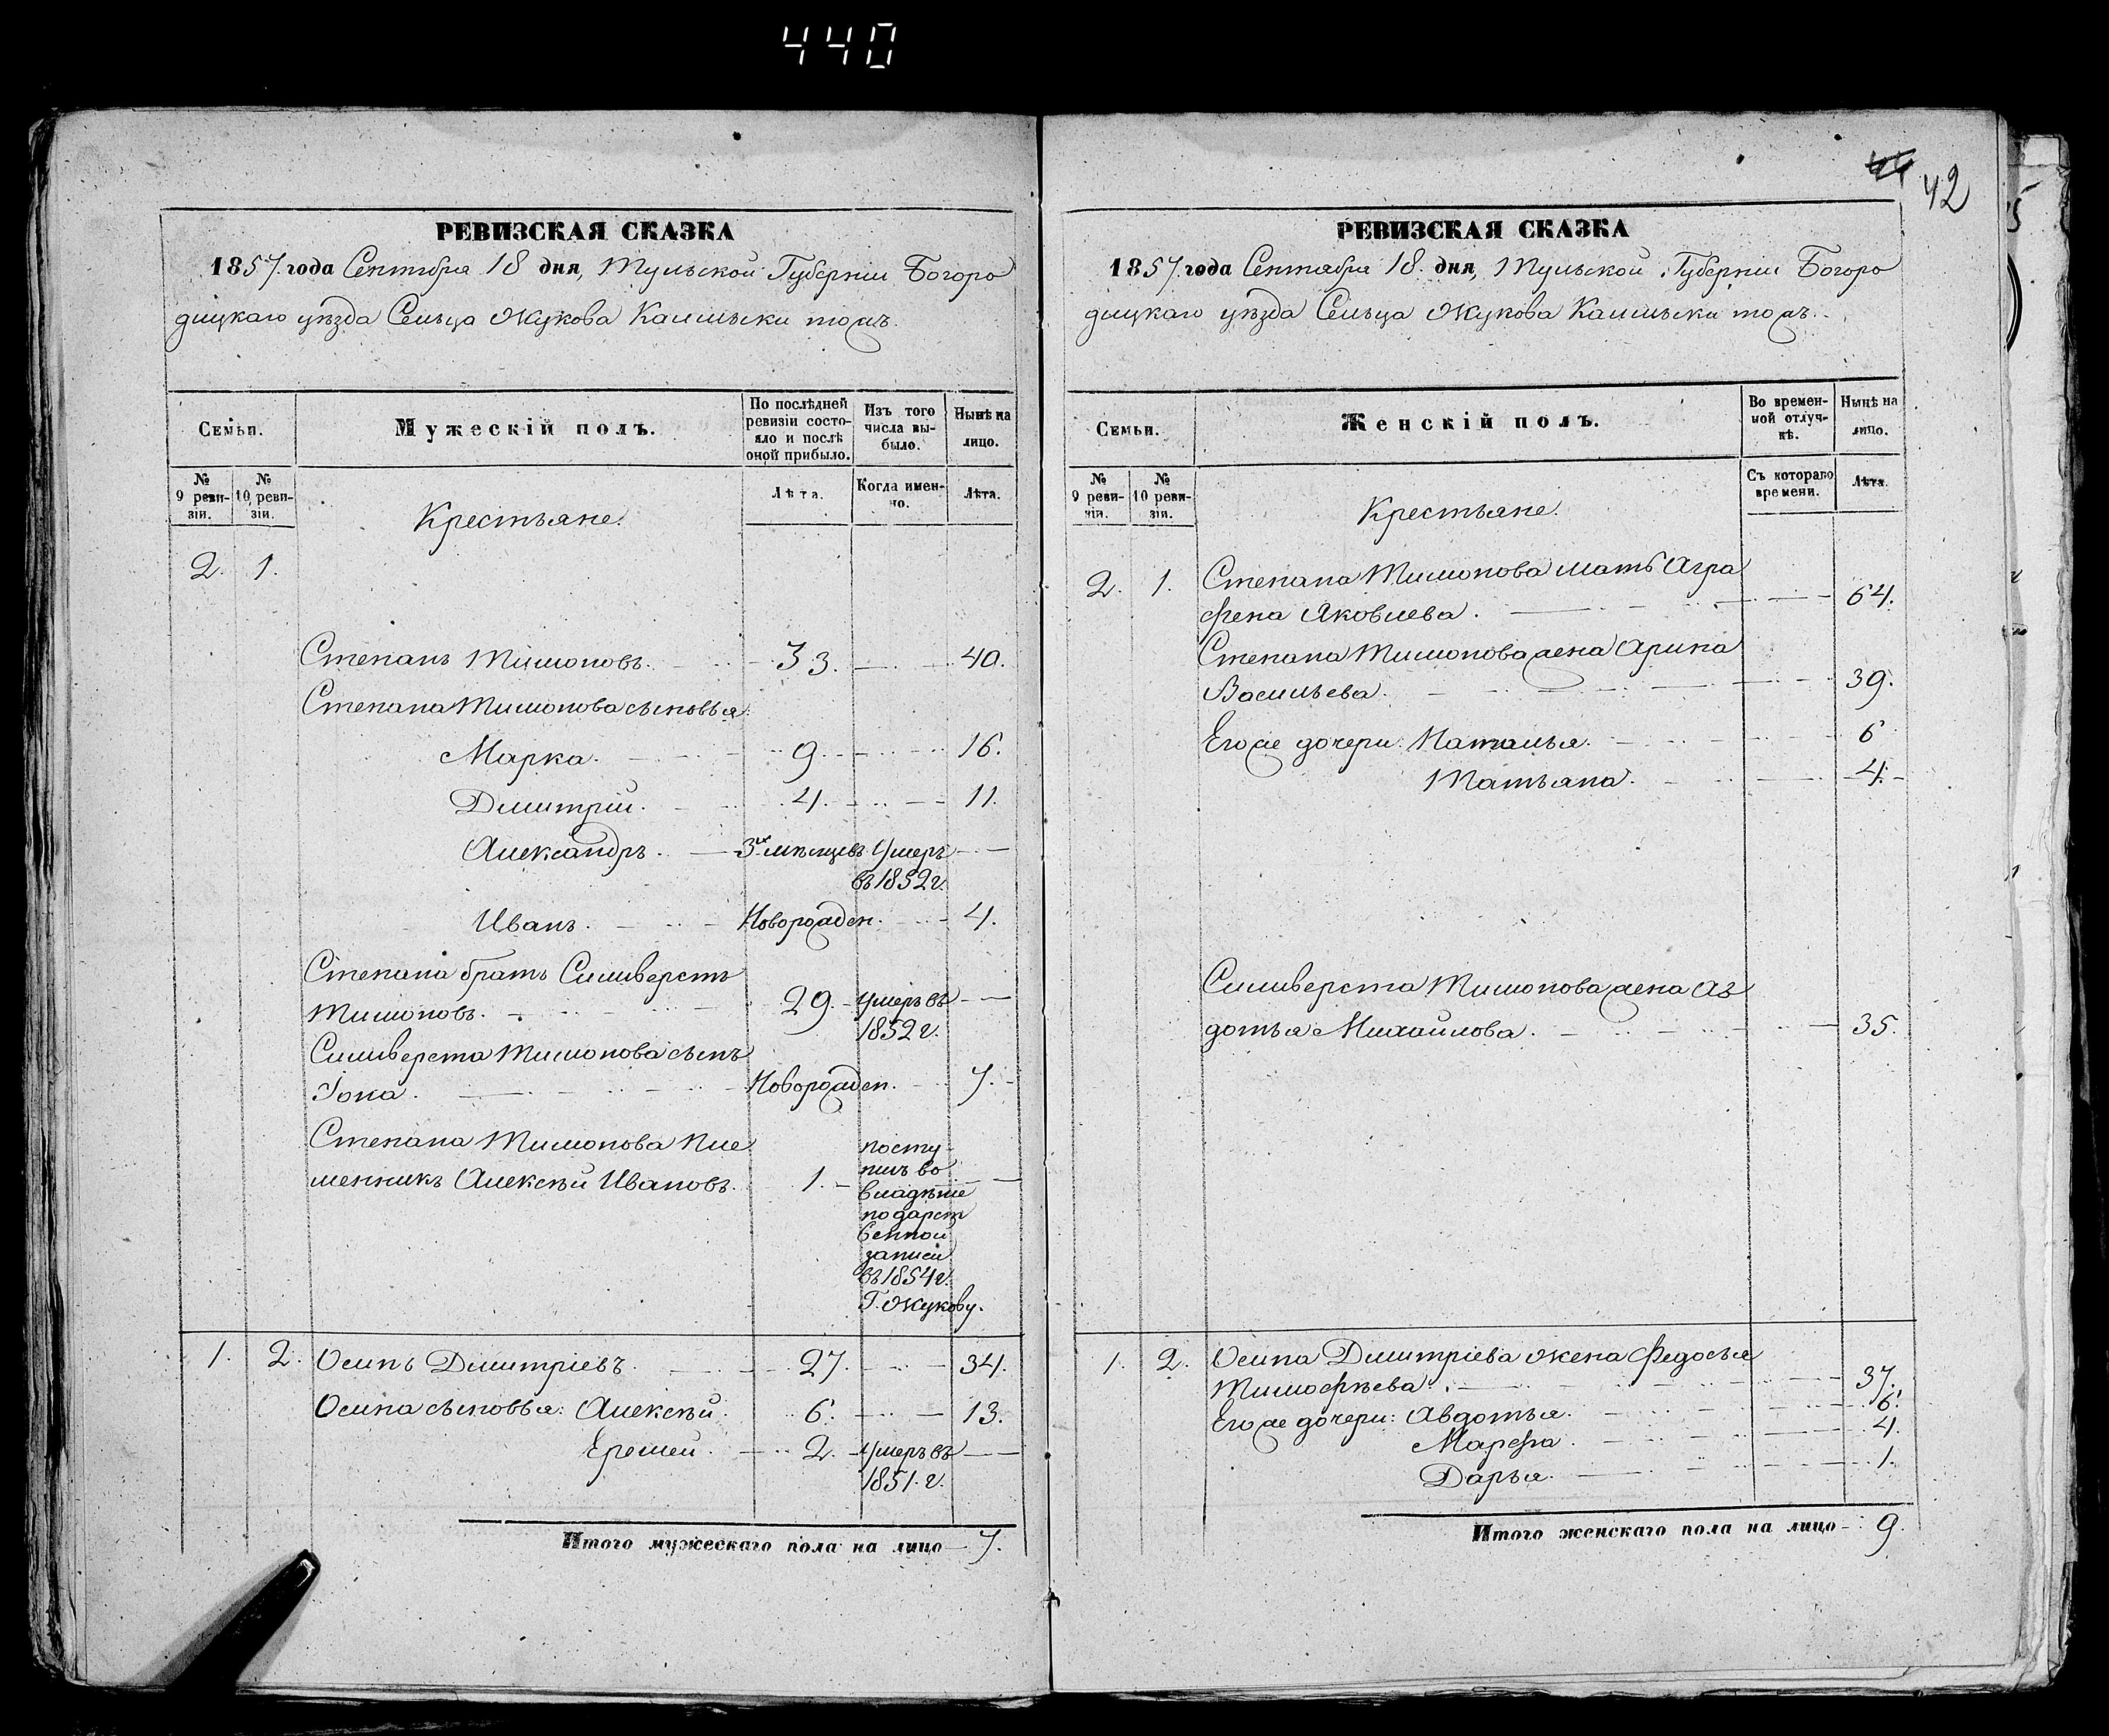 440
42
РЕВИЗСКАЯ СКАЗКА
1857. года Сентября 18 дня, Тульской Губерніи Богоро
дицкаго уѣзда Сельца Жукова Калмыки тожъ.
Семьи.
Мужескій полъ.
По послѣдней ревизіи состояло и послѣ оной прибыло.
Изъ того числа выбыло.
Нынѣ на лицо.
№ 9 ревизіи.
№ 10 ревизіи.
Крестьяне.
Лѣта.
Когда именно.
Лѣта.
2. 1.
Степанъ Тимоновъ. 33. 40.
Степана Тимонова сыновья:
Марка. 9. 16.
Дмитрій. 4. 11.
Александръ. 3х мѣсяцевъ Умеръ
въ 1852 г.
Иванъ. Новорожден. 4.
Степана братъ Силиверстъ
Тимоновъ. 29. Умеръ въ
1852 г.
Силиверста Тимонова сынъ
Іона. Новорожден. 7.
Степана Тимонова пле
менникъ Алексѣй Ивановъ. 1.
посту
пилъ во
владѣніе
по дарст
венной
записи
въ 1854 г.
Г. Жукову.
1. 2. Осипъ Дмитріевъ. 27. 34.
Осипа сыновья: Алексѣй. 6. 13.
Еремей. 2. Умеръ въ
1851. г.
Итого мужескаго пола на лицо 7.
РЕВИЗСКАЯ СКАЗКА
1857. года Сентября 18. дня, Тульской Губерніи Богоро
дицкаго уѣзда Сельца Жукова Калмыки тожъ.
Семьи.
Женскій полъ.
Во временной отлучкѣ.
Нынѣ на лицо.
№ 9 ревизіи.
№ 10 ревизіи.
Крестьяне.
Съ котораго времени.
Лѣта.
2. 1. Степана Тимонова мать Агра
фена Яковлева. 64.
Степана Тимонова жена Арина
Васильева. 39.
Его же дочери: Наталья. 6
Татьяна. 4.
Силиверста Тимонова жена Ав
дотья Михайлова. 35.
1. 2. Осипа Дмитріева жена Федосья
Тимофѣева. 37.
Его же дочери: Авдотья. 6.
Марфа. 4.
Дарья. 1.
Итого женскаго пола на лицо 9.